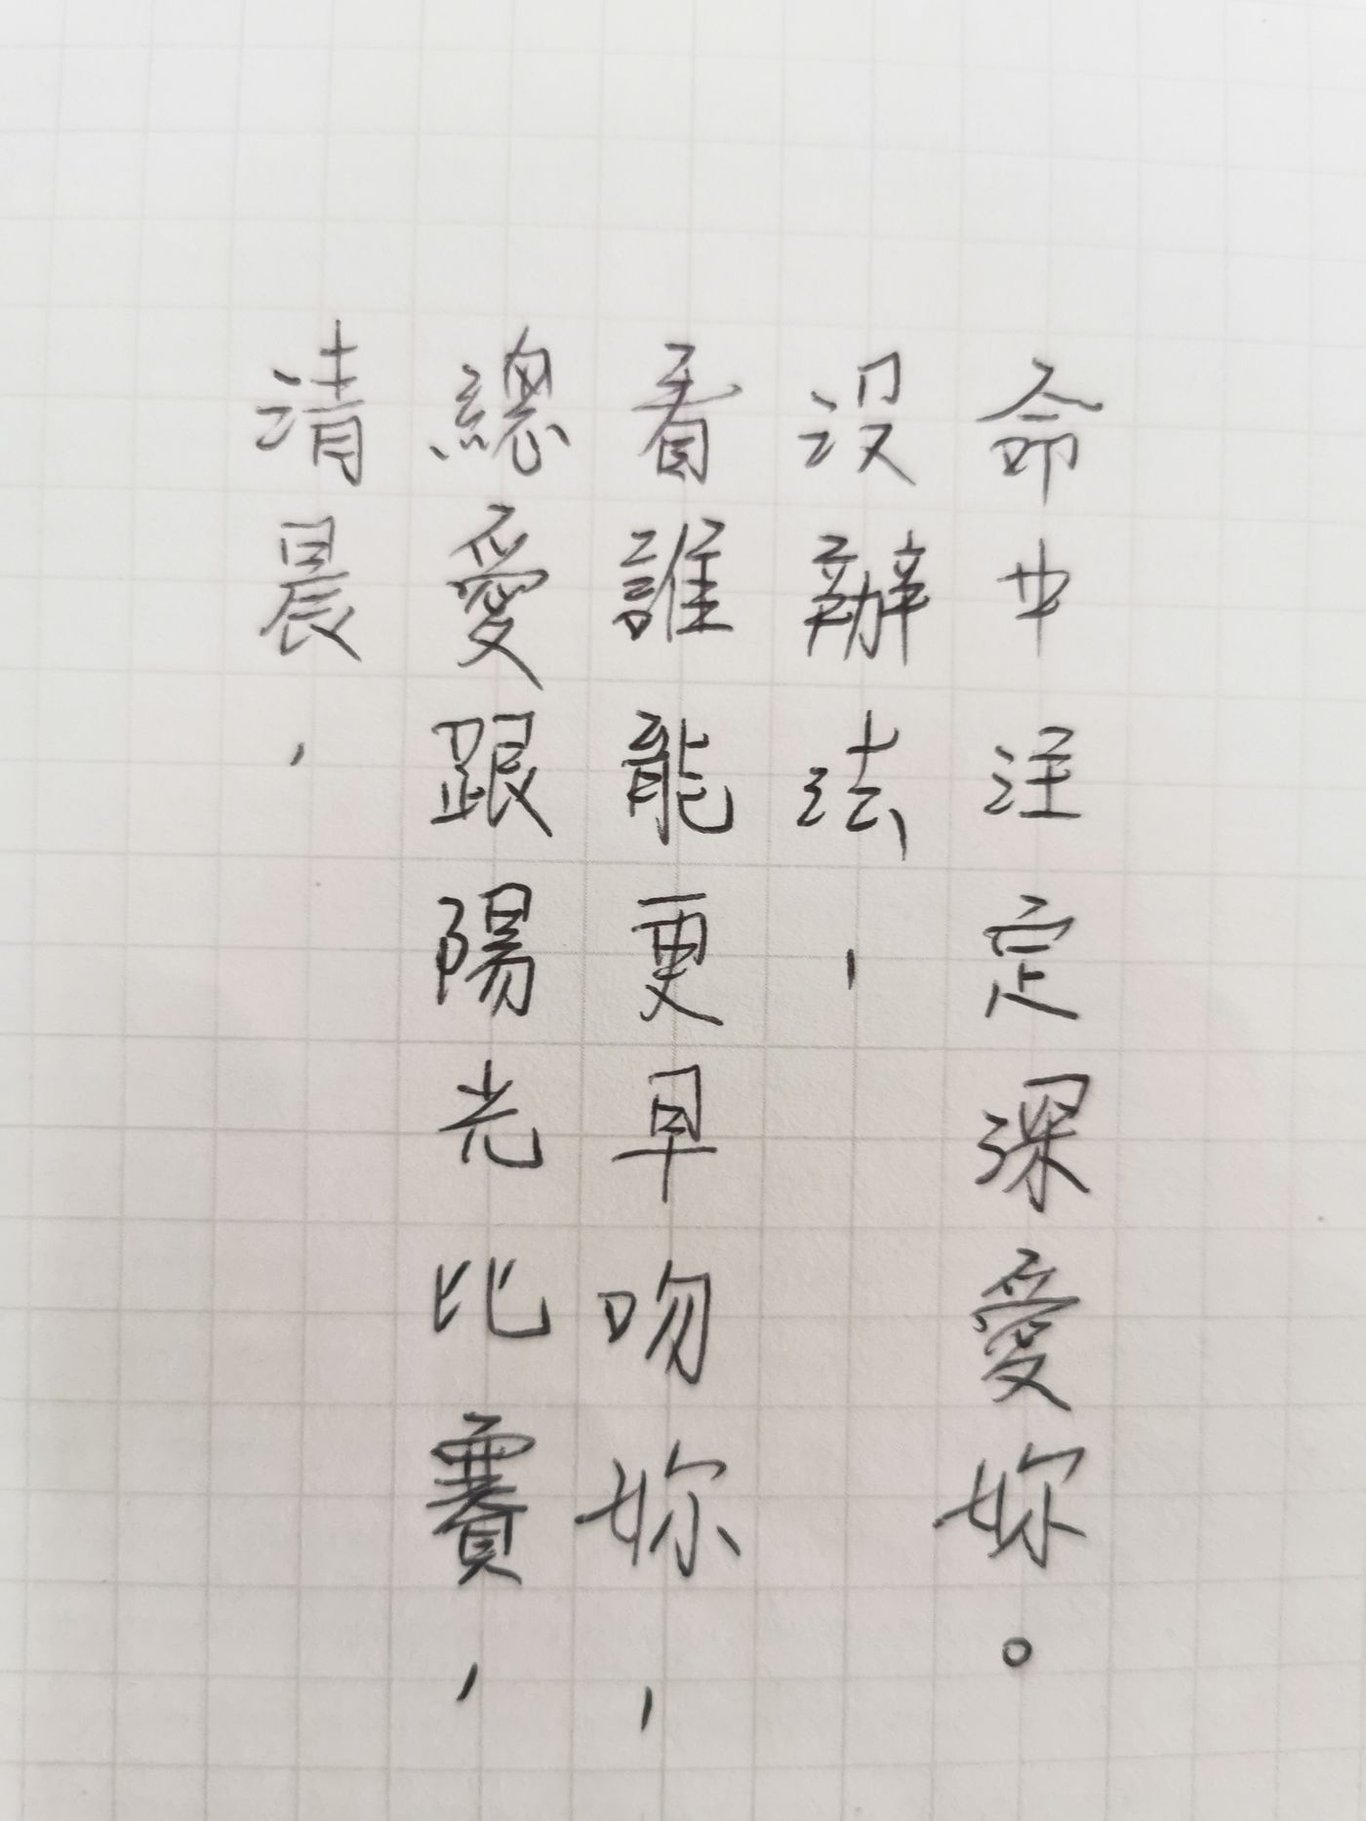 清晨，
總愛跟陽光比賽，
看誰能更早吻妳，
沒辦法，
命中注定深愛妳。